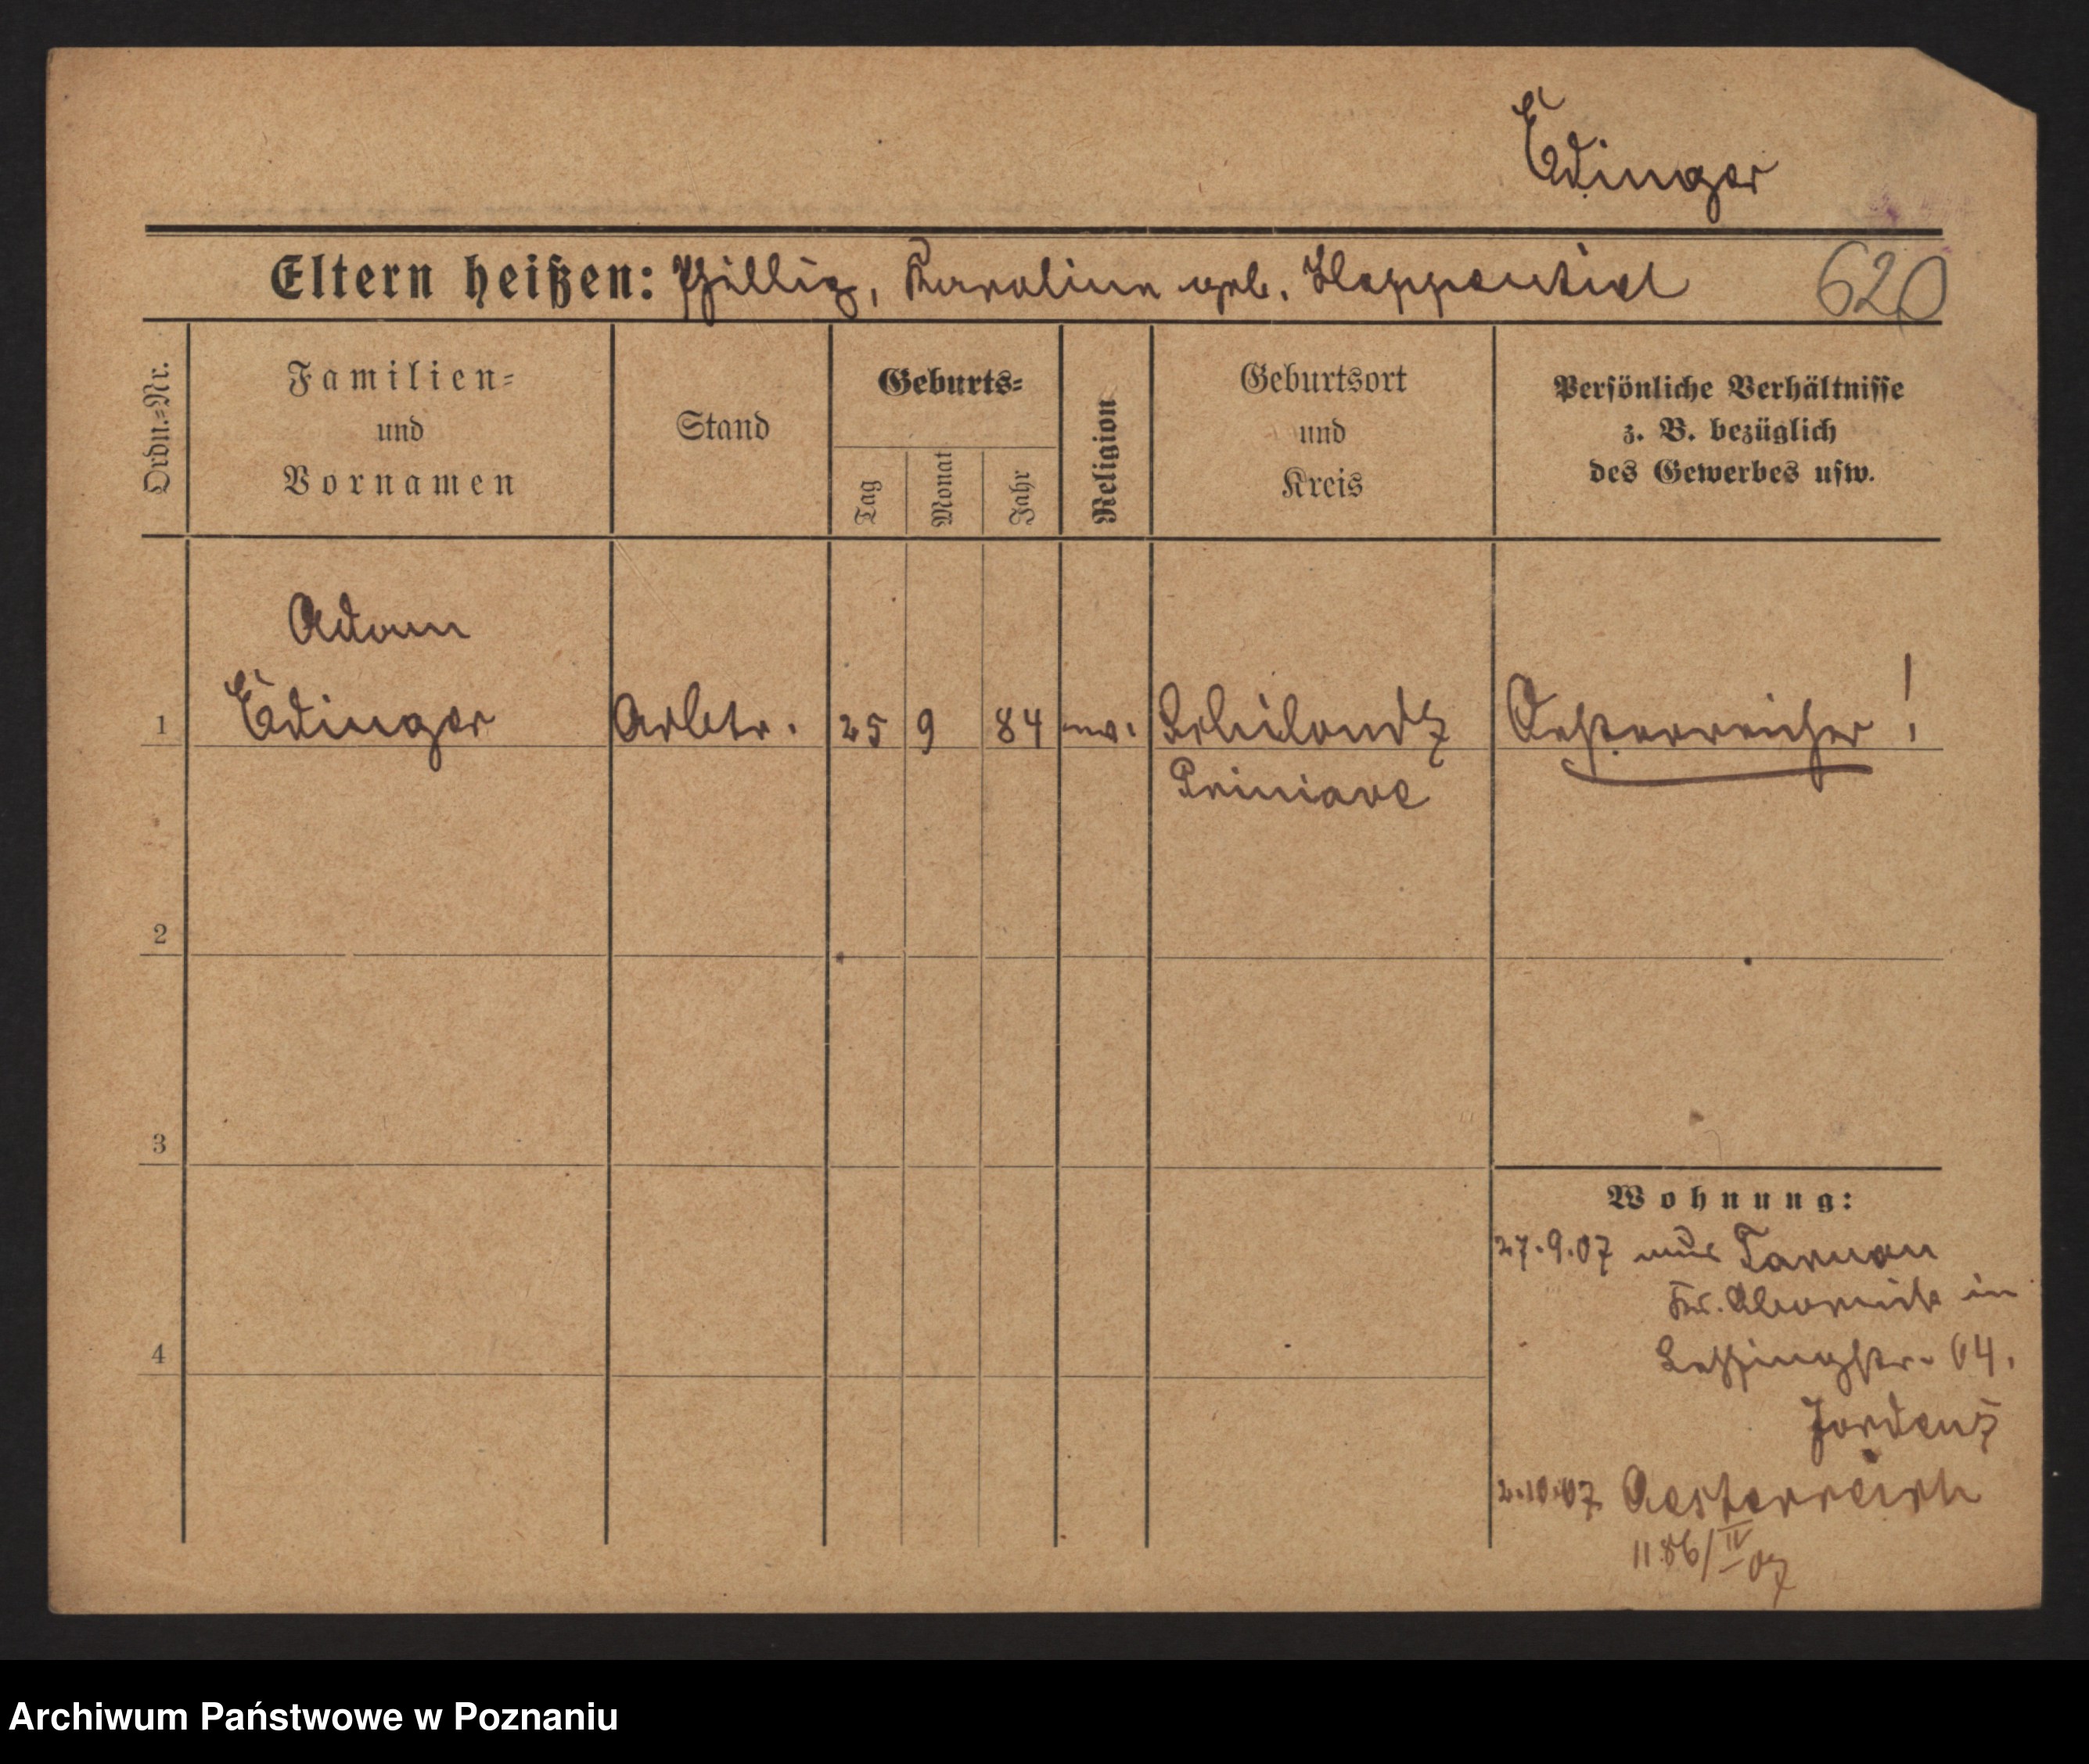 Edinger
Eltern heißen: Phillip, Karoline geb. Heppenthiel
620
Ordn.=Nr.
Familien=
und
Vornamen
Stand
Geburts=
Tag
Monat
Jahr
Religion
Geburtsort
und
Kreis
Persönliche Verhältnisse
z. B. bezüglich
des Gewerbes usw.
Adam
1 Edinger Arbtr. 25 9 84 ev. Oesterreicher!
2
3
4
Wohnung:
27.9.07 aus Tarnow
Kr. in
Lessingstr. 64.
2.10.07 Oesterreich
1186/IV 07
Archiwum Państwowe w Poznaniu